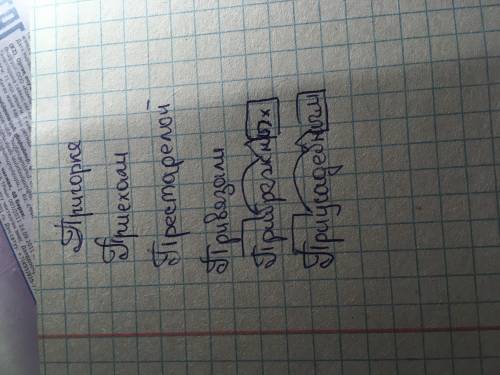 Пригорке
Приехали
Престарелой
Привязали
Прибрежных
Приусадебным